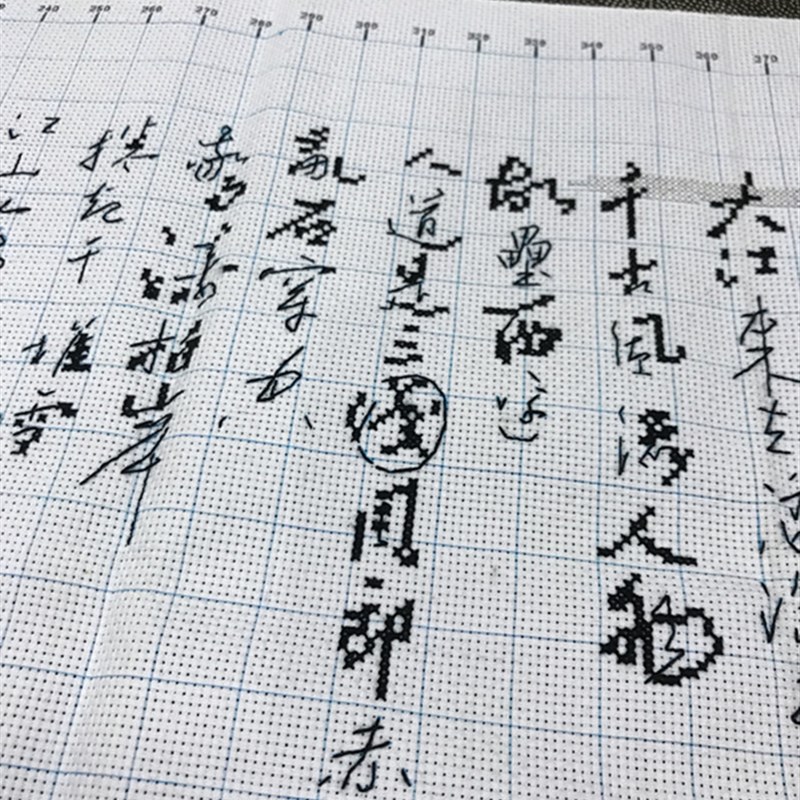 240 250 260 270 280 290 300 310 320 330 340 350 360 370
大江東去浪
千古風流人物
故壘西邊
人道是三國周郎赤
亂石穿空
驚濤拍岸
捲起千堆雪
江山